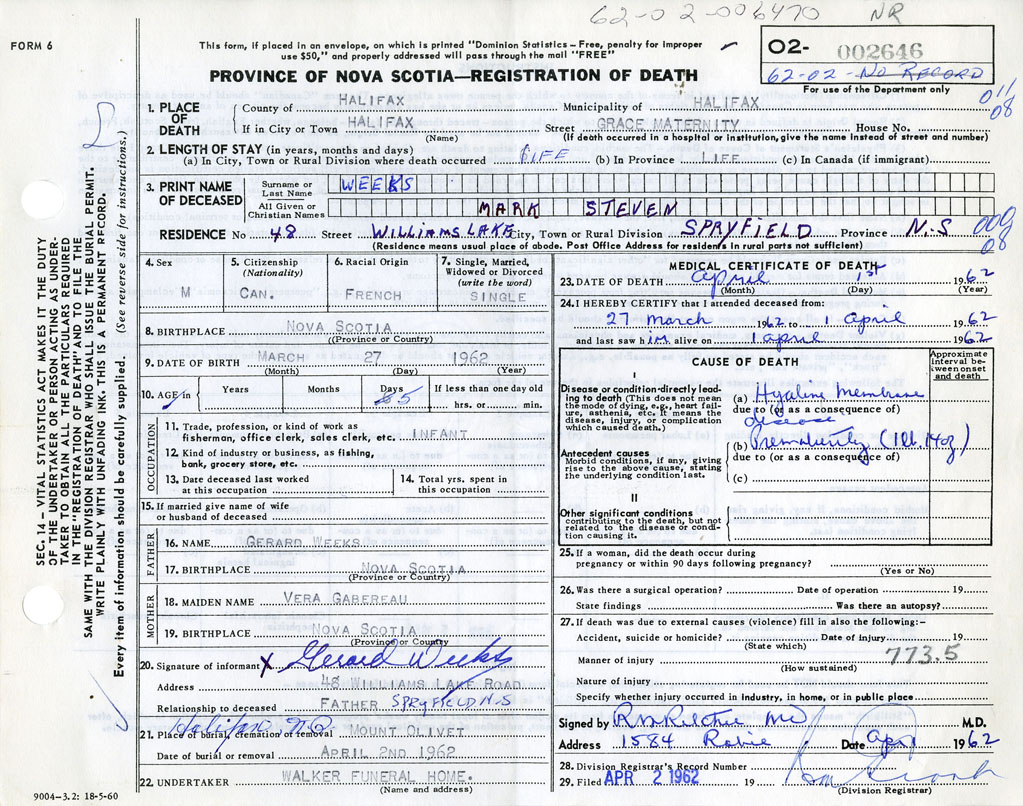 62-02-006470 NR
FORM 6
This form, if placed in an envelope, on which is printed "Dominion Statistics – Free, penalty for improper
use $50," and properly addressed will pass through the mail "FREE"
O2- 002646
62-02-No Record
For use of the Department only
PROVINCE OF NOVA SCOTIA—REGISTRATION OF DEATH
011
08
1. PLACE OF DEATH County of HALIFAX Municipality of HALIFAX
If in City or Town HALIFAX (Name) Street GRACE MATERNITY House No.
(If death occurred in a hospital or institution, give the name instead of street and number)
2. LENGTH OF STAY (in years, months and days)
(a) In City, Town or Rural Division where death occurred LIFE (b) In Province LIFE (c) In Canada (if immigrant)
3. PRINT NAME OF DECEASED
Surname or Last Name WEEKS
All Given or Christian Names MARK STEVEN
RESIDENCE No 48 Street WILLIAMS LAKE City, Town or Rural Division SPRYFIELD Province N.S
009
08
(Residence means usual place of abode. Post Office Address for residents in rural parts not sufficient)
4. Sex M
5. Citizenship (Nationality) CAN.
6. Racial Origin FRENCH
7. Single, Married, Widowed or Divorced (write the word) SINGLE
8. BIRTHPLACE NOVA SCOTIA
((Province or Country)
9. DATE OF BIRTH MARCH 27 1962
(Month) (Day) (Year)
10. AGE in Years Months Days 5 If less than one day old
hrs. or min.
OCCUPATION
11. Trade, profession, or kind of work as
fisherman, office clerk, sales clerk, etc. INFANT
12. Kind of industry or business, as fishing,
bank, grocery store, etc.
13. Date deceased last worked
at this occupation
14. Total yrs. spent in
this occupation
15. If married give name of wife
or husband of deceased
FATHER
16. NAME GERARD WEEKS
17. BIRTHPLACE NOVA SCOTIA
(Province or Country)
MOTHER
18. MAIDEN NAME VERA GABEREAU
19. BIRTHPLACE NOVA SCOTIA
(Province or Country)
20. Signature of informant X Gerard Weeks
Address 48 WILLIAMS LAKE ROAD
Relationship to deceased FATHER SPRYFIELD N-S
21. Place of burial, cremation or removal MOUNT OLIVET
Date of burial or removal APRIL 2ND 1962
22. UNDERTAKER WALKER FUNERAL HOME.
(Name and address)
MEDICAL CERTIFICATE OF DEATH
23. DATE OF DEATH April 1st 1962
(Month) (Day) (Year)
24. I HEREBY CERTIFY that I attended deceased from:
27 March 1962 to 1 April 1962
and last saw him alive on 1 April 1962
CAUSE OF DEATH
Approximate interval between onset and death
I
Disease or condition directly leading to death (This does not mean the mode of dying, e.g., heart failure, asthenia, etc. It means the disease, injury, or complication which caused death.)
(a) Hyaline Membrane
due to (or as a consequence of)
disease
Antecedent causes
Morbid conditions, if any, giving rise to the above cause, stating the underlying condition last.
(b) Prematurity (1 lb. 14 oz)
due to (or as a consequence of)
(c)
II
Other significant conditions
contributing to the death, but not related to the disease or condition causing it.
25. If a woman, did the death occur during
pregnancy or within 90 days following pregnancy?
(Yes or No)
26. Was there a surgical operation? Date of operation 19
State findings Was there an autopsy?
27. If death was due to external causes (violence) fill in also the following:–
Accident, suicide or homicide? Date of injury 19
(State which)
773.5
Manner of injury
(How sustained)
Nature of injury
Specify whether injury occurred in industry, in home, or in public place
Signed by R M Ritchie MD M.D.
Address 1584 Robie Date Apr 1 1962
28. Division Registrar's Record Number
29. Filed APR 2 1962 19
(Division Registrar)
SEC. 14 – VITAL STATISTICS ACT MAKES IT THE DUTY
OF THE UNDERTAKER OR PERSON ACTING AS UNDER-
TAKER TO OBTAIN ALL THE PARTICULARS REQUIRED
IN THE "REGISTRATION OF DEATH" AND TO FILE THE
SAME WITH THE DIVISION REGISTRAR WHO SHALL ISSUE THE BURIAL PERMIT.
WRITE PLAINLY WITH UNFADING INK. THIS IS A PERMANENT RECORD.
Every item of information should be carefully supplied. (See reverse side for instructions.)
9004-3.2: 18-5-60